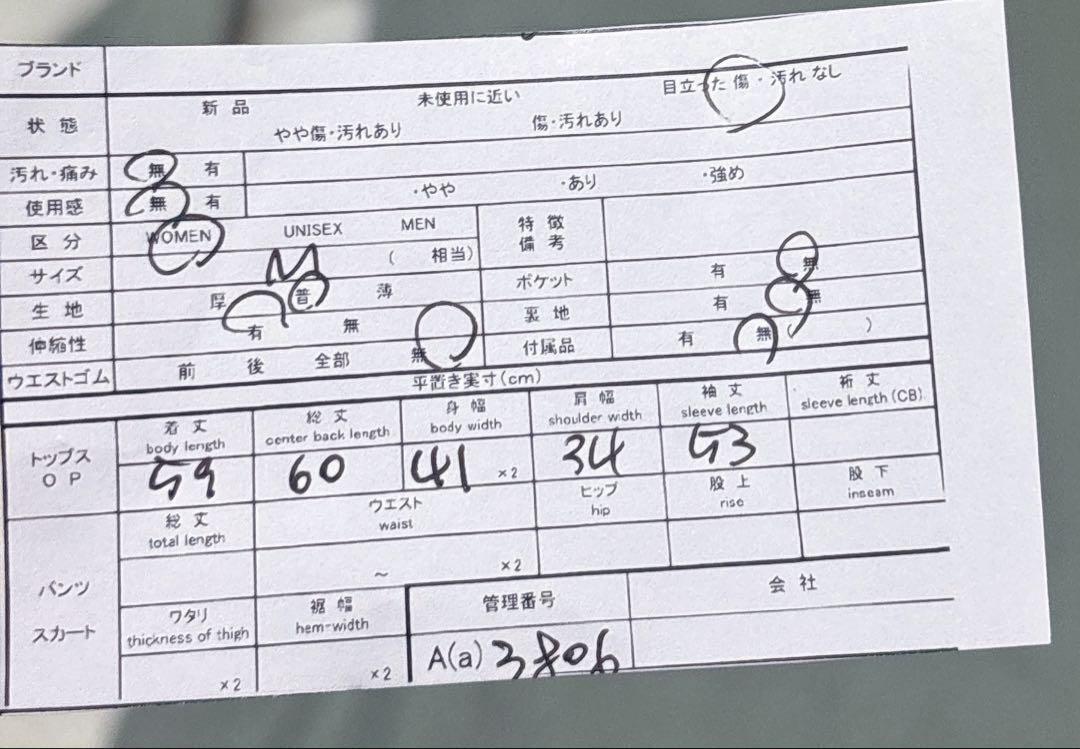 ブランド
状態
新品 未使用に近い 目立った傷・汚れなし
やや傷・汚れあり 傷・汚れあり
汚れ・痛み 無 有
使用感 無 有 ・やや ・あり ・強め
区分 WOMEN UNISEX MEN
特徴
備考
サイズ M ( 相当)
ポケット 有 無
生地 厚 普 薄
裏地 有 無
伸縮性 有 無
付属品 有 無 ( )
ウエストゴム 前 後 全部 無
平置き実寸(cm)
トップス
OP
着丈 総丈 身幅 肩幅 袖丈 裄丈
body length center back length body width shoulder width sleeve length sleeve length (CB)
59 60 41 ×2 34 53
パンツ
スカート
総丈 ウエスト ヒップ 股上 股下
total length waist hip rise inseam
~ ×2
ワタリ 裾幅 管理番号 会社
thickness of thigh hem-width
×2 ×2 A(a) 3806